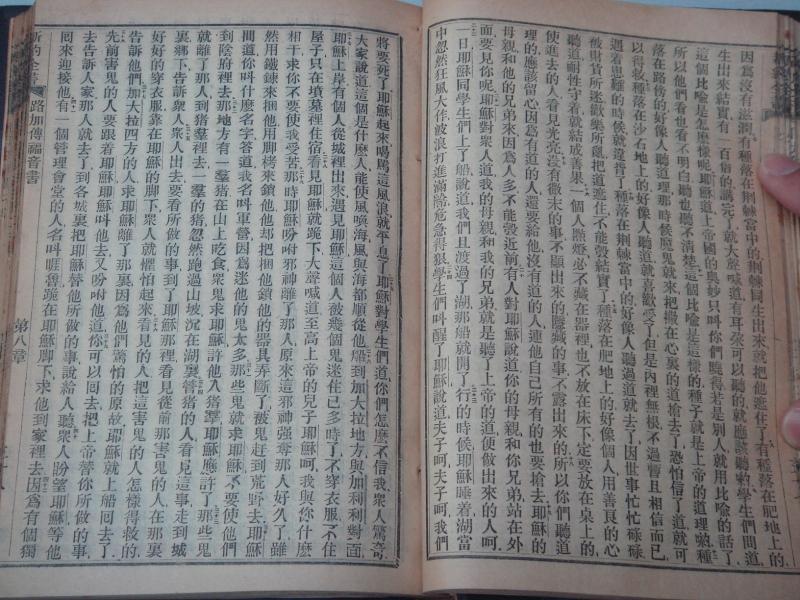 因爲沒有滋潤有種落在荆棘當中的荆棘同生出來就把他遮住了有種落在肥地上的
生出來結實有一百倍的講完了就大聲喊道有耳朶可以聽的就應該聽勒學生們問道
這個比喻是怎樣呢耶穌道上帝國的奧妙只叫你們曉得若是別人就用比喻的話了
所以他們看也看不明白聽也聽不清楚這個比喻是這樣的種子就是上帝的道理勒種
落在路傍的好像人聽道理那時候魔鬼就來把撒在心裏的道搶去了恐怕信了道就可
以得救種落在沙石地上的好像人聽道就喜歡受了但是內裡無根不過暫且相信而已
遇着患難的時候就違背了種落在荆棘當中的好像人聽過道就去了因世事忙忙碌碌
被財貨所迷歡樂所亂把道遮住不能彀結實了種落在肥地上的好像個人用善良的心
聽道耐性守着就結成善果一個人點燈必不藏在器裡也不放在床下定要放在桌上的
使進去的人看見光亮沒有微末的事不顯出來的隱藏的事不露出來的所以你們聽道
理的應該留心因爲有道的人還要給他沒有道的人連他自己所有的也要搶去耶穌的
母親和他的兄弟來因爲人多不能彀近前有人對耶穌說道你的母親和你兄弟站在外
面要見你呢耶穌對衆人道我的母親和我的兄弟就是聽了上帝的道便做出來的人呵
一日耶穌同學生們上了船說道我們且渡過了湖那船就開了行的時候耶穌睡着湖當
中忽然狂風大作波浪打進滿艙危急得狠學生們叫醒了耶穌說道夫子呵夫子呵我們
將要死了耶穌起來喝罵這風浪就平息了耶穌對學生們道你們怎麽不信我衆人驚奇
大家說道這個是什麽人能使風喚海風與海都順從他船到加大拉地方與加利利對面
耶穌上岸有個人從城裡出來遇見耶穌這個人被幾個鬼迷住已多時了不穿衣服不住
屋子只在墳墓裡住宿看見耶穌就跪下大聲喊道至高上帝的兒子耶穌呵我與你什麽
相干求你不要使我受苦那時耶穌吩咐邪神離了那人原來這邪神強奪那人好久了雖
然用鐵鍊來捆他用脚栲來鎖他他却把捆他鎖他的器具弄斷了被鬼趕到荒野去耶穌
間道你叫什麽名字答道我名叫軍營因爲迷他的鬼太多那些鬼就求耶穌不要使他們
到陰府裡去那地方有一羣猪在山上吃食衆鬼求耶穌許他入猪羣耶穌應許了那些鬼
就離了那人到猪羣裡去一羣的猪忽然跑過山坡沉在湖裏管猪的人看見這事走到城
裏鄉下告訴衆人衆人出去要看所做的事到了耶穌那裡看見從前那害鬼的人在那裏
好好的穿衣服靠在耶穌的脚下衆人就懼怕起來看見的人把這害鬼的人怎樣得救的
告訴他們加大拉四方的人求耶穌離了那裏因爲他們驚怕的原故耶穌就上船囘去了
先前害鬼的人要跟着耶穌耶穌叫他去又吩咐他道你可以囘去把上帝替你所做的事
去告訴人家那人就去了到各城裏把耶穌替他所做的事說給人聽衆人盼望耶穌等他
囘來迎接他有一個管理會堂的人名叫睚魯跪在耶穌脚下求他到家裡去因爲有個獨
新約全書 路加傳福音書 第八章